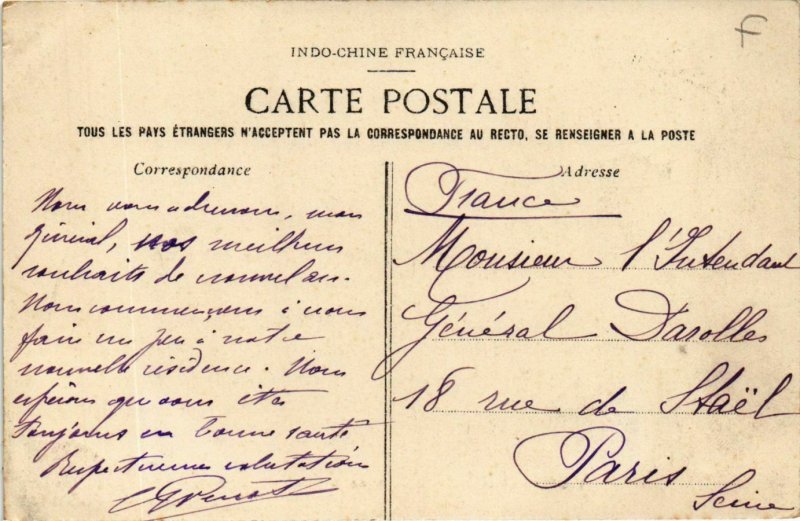 F
INDO-CHINE FRANÇAISE
CARTE POSTALE
TOUS LES PAYS ÉTRANGERS N'ACCEPTENT PAS LA CORRESPONDANCE AU RECTO, SE RENSEIGNER A LA POSTE
Correspondance
Nous vous adressons, mon
général, nos meilleurs
souhaits de nouvel an.
Nous commençons à nous
faire un peu à notre
nouvelle résidence. Nous
espérons que vous êtes
Toujours en bonne santé
Respectueuses salutations
Adresse
France
Monsieur l'Intendant
Général Darolles
18 rue de Staël
Paris
Seine